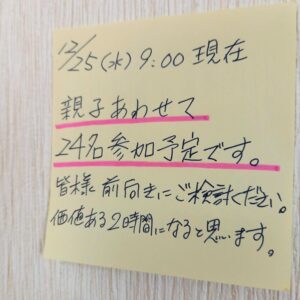 12/25(水)9:00現在
親子あわせて
24名参加予定です。
皆様前向きにご検討ください。
価値ある2時間になると思います。